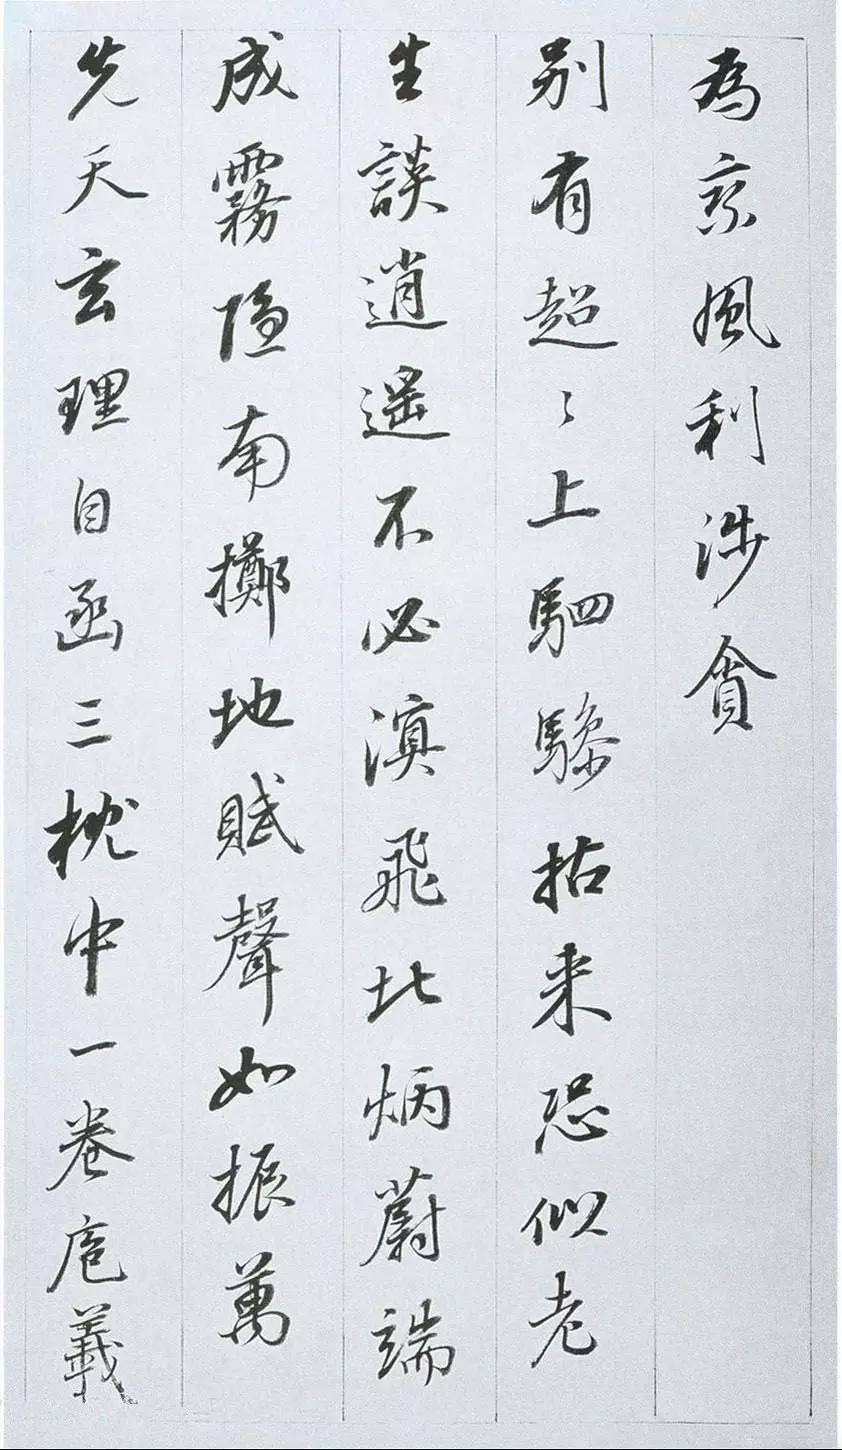 為京風利涉貪
別有超〻上駟驂拈来恐似老
生談逍遥不必溟飛北炳蔚端
成霧隐南擲地賦聲如振萬
先天玄理自函三枕中一卷庖羲